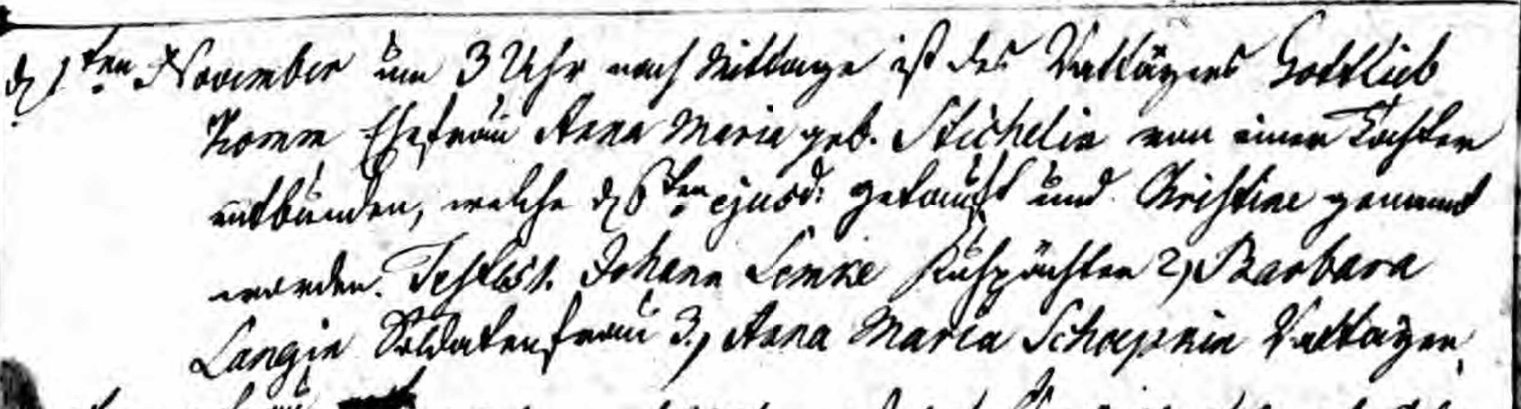 d 1ten November um 3 Uhr nach Mittage ist des Gottlieb
Komm Ehefrau Anna Maria geb. Stichelin von einer Tochter
entbunden, welche d 8ten ejusd: getauft und Christine genannt
worden. Test. 1. Johann Lemke Kuhpächter 2, Barbara
Langin Soldatenfrau 3, Anna Maria Schoepkin